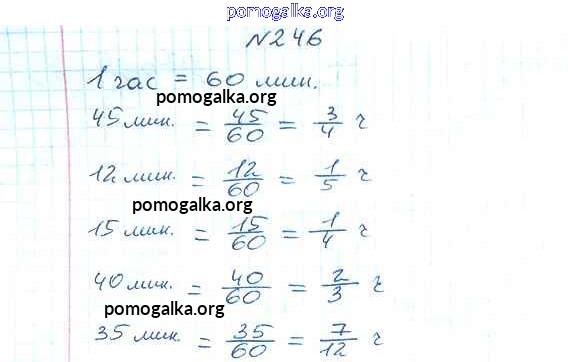 pomogalka.org
№246
1 час = 60 мин.
pomogalka.org
45 мин. = 45/60 = 3/4 ч
12 мин. = 12/60 = 1/5 ч
pomogalka.org
15 мин. = 15/60 = 1/4 ч
40 мин. = 40/60 = 2/3 ч
pomogalka.org
35 мин. = 35/60 = 7/12 ч